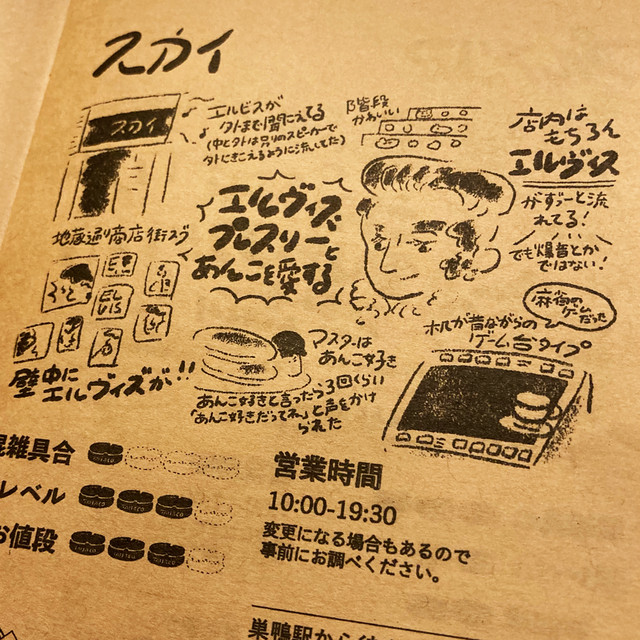 スカイ
スカイ
エルビスが
外まで聞こえてる
(中と外は別のスピーカーで
外にきこえるように流してた)
階段
かわいい
店内は
もちろん
エルヴィス
がずーっと流
れてる!
でも爆音とか
ではない!
地蔵通り商店街スグ
エルヴィス・
プレスリーと
あんこを愛する
ELVIS
壁中に
エルヴィスが!!
マスターは
あんこ好き
あんこ好きと言ったら3回くらい
「あんこ好きだってね」と声をかけ
られた
麻雀の
ゲームだった
机が昔ながらの
ゲーム台タイプ
混雑具合
レベル
お値段
営業時間
10:00-19:30
変更になる場合もあるので
事前にお調べください。
巣鴨駅から